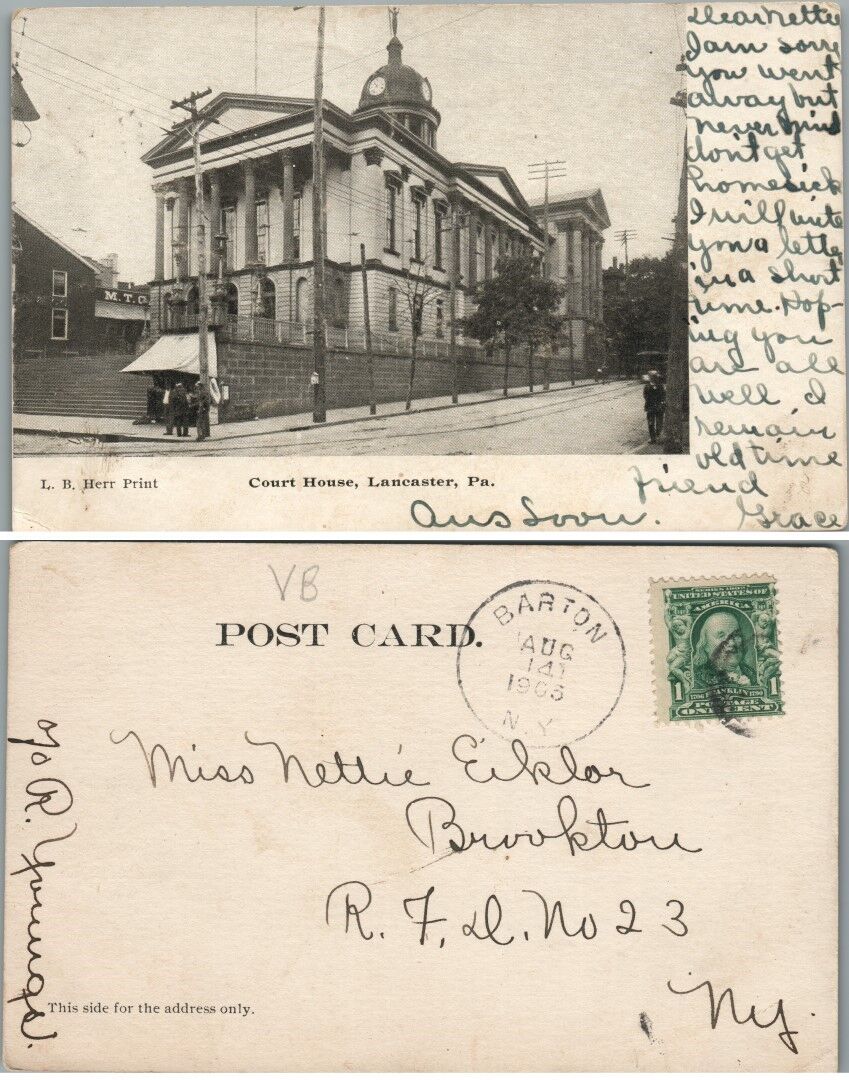 Dear Nettie
I am sorry
you went
away but
never mind
dont get
homesick
I will write
you a letter
in a short
time. Hop-
ing you
are all
well I
remain
old time
friend
Grace
Ans Soon.
M. T. Co
L. B. Herr Print
Court House, Lancaster, Pa.
VB
POST CARD.
BARTON
AUG
14
1905
N.Y.
SERIES 1902
UNITED STATES OF
AMERICA
1 FRANKLIN 1
1706 1790
POSTAGE
ONE CENT
Miss Nettie Eiklor
Brookton
R. F. D. No 23
Ny.
c/o R. Younge.
This side for the address only.